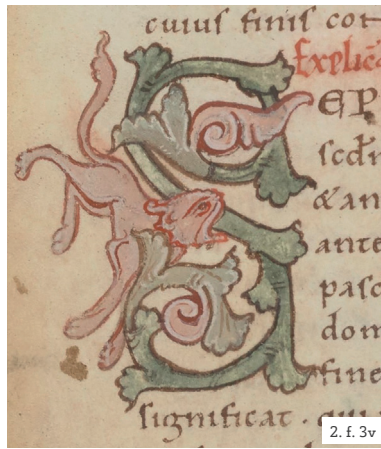 cuius finis con
Explic
SEP
scdm
& an
ante
pasc
dom
fine
significat · qui
2. f. 3v